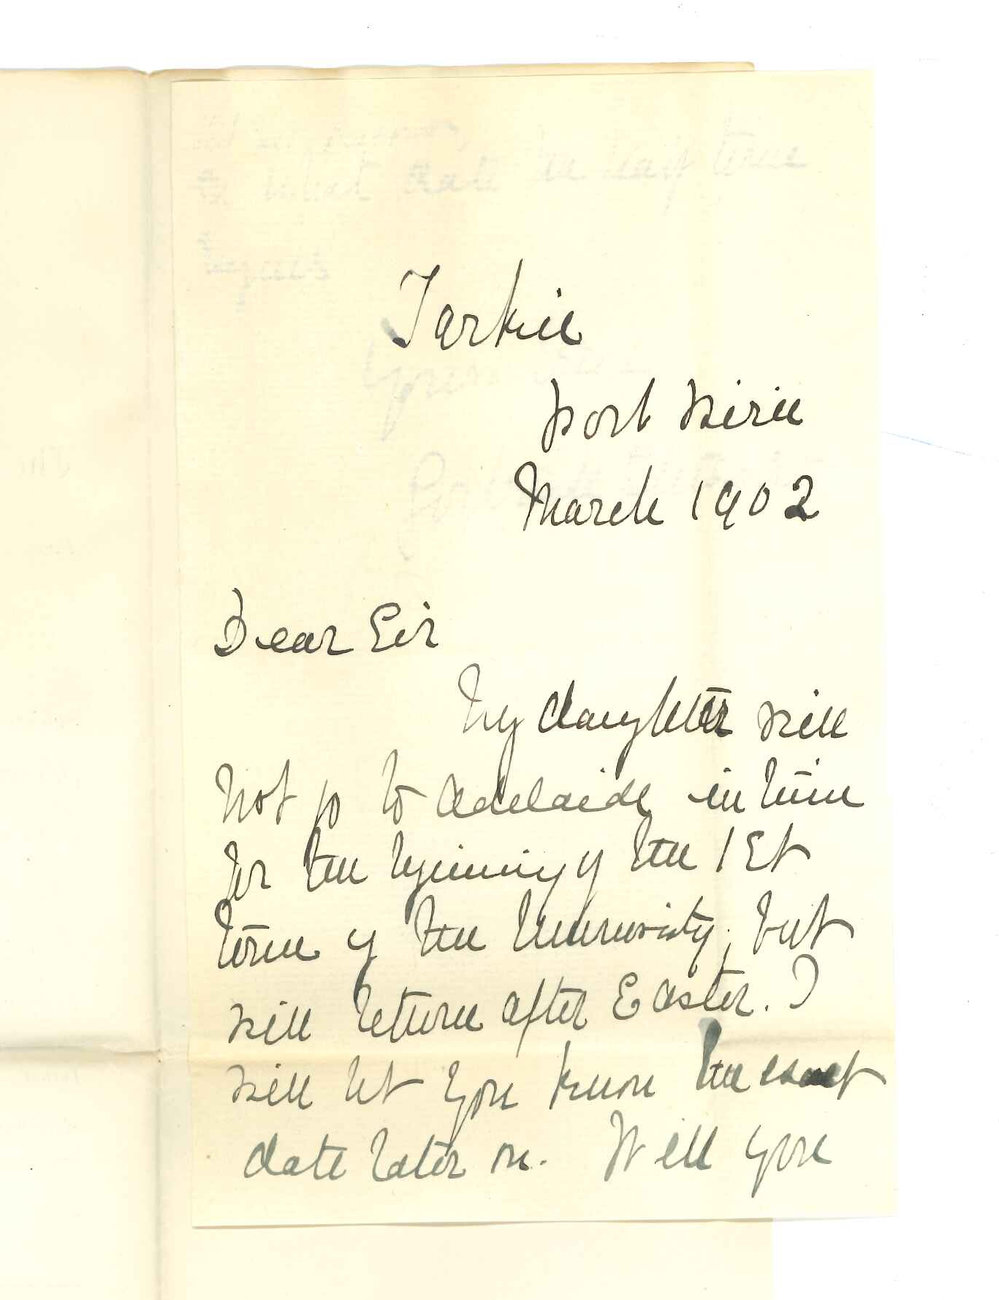 Tarkie
Port Pirie
March 1902
Dear Sir
My daughter will
not go to Adelaide in time
for the beginning of the 1st
term of the University, but
will return after Easter. I
will let you know the exact
date later on. Will you